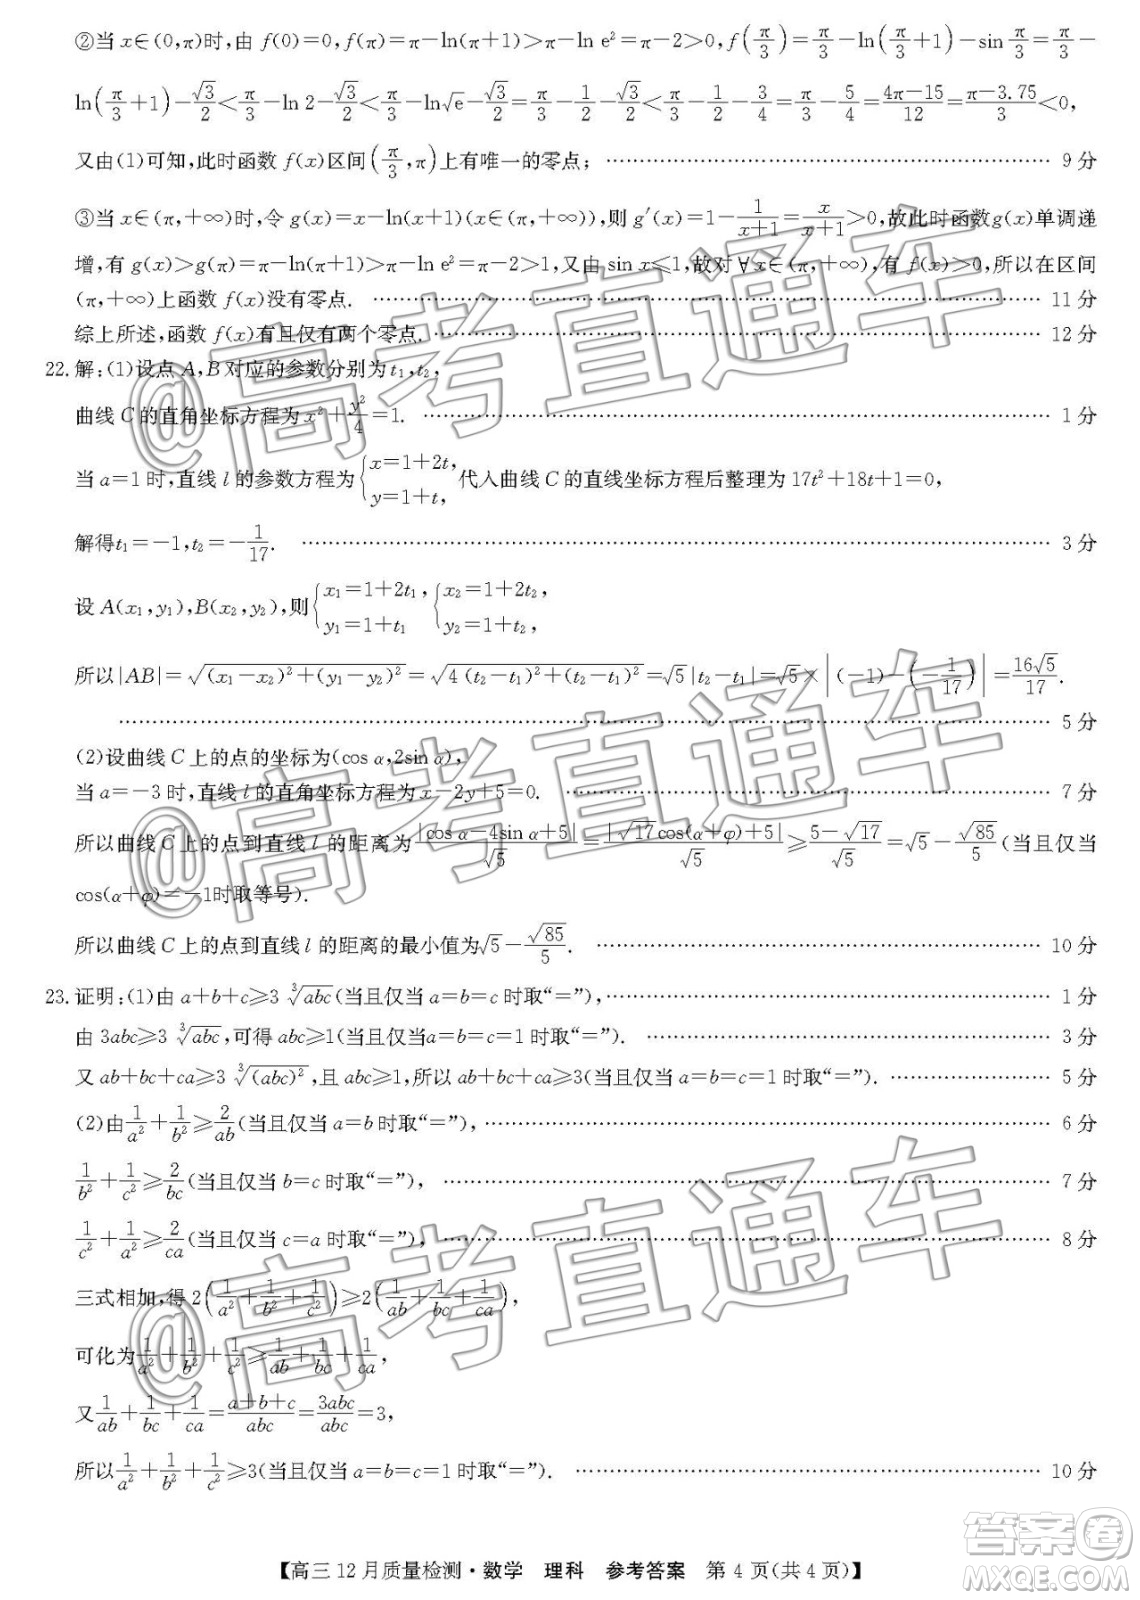 ②当 x∈(0,π)时,由 f(0)=0,f(π)=π−ln(π+1)>π−ln e²=π−2>0,f(π/3)=π/3−ln(π/3+1)−sin π/3=π/3−
ln(π/3+1)−√3/2<π/3−ln 2−√3/2<π/3−ln√e−√3/2=π/3−1/2−√3/2<π/3−1/2−3/4=π/3−5/4=(4π−15)/12=(π−3.75)/3<0,
又由(1)可知,此时函数 f(x)区间(π/3,π)上有唯一的零点; …… 9 分
③当 x∈(π,+∞)时,令 g(x)=x−ln(x+1)(x∈(π,+∞)),则 g′(x)=1−1/(x+1)=x/(x+1)>0,故此时函数g(x)单调递
增,有 g(x)>g(π)=π−ln(π+1)>π−ln e²=π−2>1,又由 sin x≤1,故对∀x∈(π,+∞),有 f(x)>0,所以在区间
(π,+∞)上函数 f(x)没有零点. …… 11 分
综上所述,函数 f(x)有且仅有两个零点. …… 12 分
22.解:(1)设点 A,B对应的参数分别为t₁,t₂,
曲线 C的直角坐标方程为 x²+y²/4=1. …… 1 分
当 a=1 时,直线 l 的参数方程为{x=1+2t, y=1+t, 代入曲线 C 的直线坐标方程后整理为 17t²+18t+1=0,
解得t₁=−1,t₂=−1/17. …… 3 分
设 A(x₁,y₁),B(x₂,y₂),则{x₁=1+2t₁, y₁=1+t₁ {x₂=1+2t₂, y₂=1+t₂,
所以|AB|=√((x₁−x₂)²+(y₁−y₂)²)=√(4(t₂−t₁)²+(t₂−t₁)²)=√5|t₂−t₁|=√5×|(−1)−(−1/17)|=16√5/17.
…… 5 分
(2)设曲线 C 上的点的坐标为(cos α,2sin α),
当 a=−3 时,直线 l的直角坐标方程为 x−2y+5=0. …… 7 分
所以曲线 C 上的点到直线 l 的距离为|cos α−4sin α+5|/√5=|√17cos(α+φ)+5|/√5≥(5−√17)/√5=√5−√85/5(当且仅当
cos(α+φ)=−1时取等号).
所以曲线 C 上的点到直线 l 的距离的最小值为√5−√85/5. …… 10 分
23.证明:(1)由 a+b+c≥3 ∛abc(当且仅当 a=b=c 时取“=”), …… 1 分
由 3abc≥3 ∛abc,可得 abc≥1(当且仅当a=b=c=1 时取“=”). …… 3 分
又 ab+bc+ca≥3 ∛(abc)²,且 abc≥1,所以 ab+bc+ca≥3(当且仅当a=b=c=1 时取“=”). …… 5 分
(2)由1/a²+1/b²≥2/ab(当且仅当 a=b 时取“=”), …… 6 分
1/b²+1/c²≥2/bc(当且仅当 b=c 时取“=”), …… 7 分
1/c²+1/a²≥2/ca(当且仅当 c=a 时取“=”), …… 8 分
三式相加,得 2(1/a²+1/b²+1/c²)≥2(1/ab+1/bc+1/ca),
可化为1/a²+1/b²+1/c²≥1/ab+1/bc+1/ca,
又1/ab+1/bc+1/ca=(a+b+c)/abc=3abc/abc=3,
所以1/a²+1/b²+1/c²≥3(当且仅当 a=b=c=1 时取“=”). …… 10 分
【高三 12 月质量检测·数学 理科 参考答案 第 4 页(共 4 页)】
@高考直通车
@高考直通车
@高考直通车
答案卷
MXQE.COM